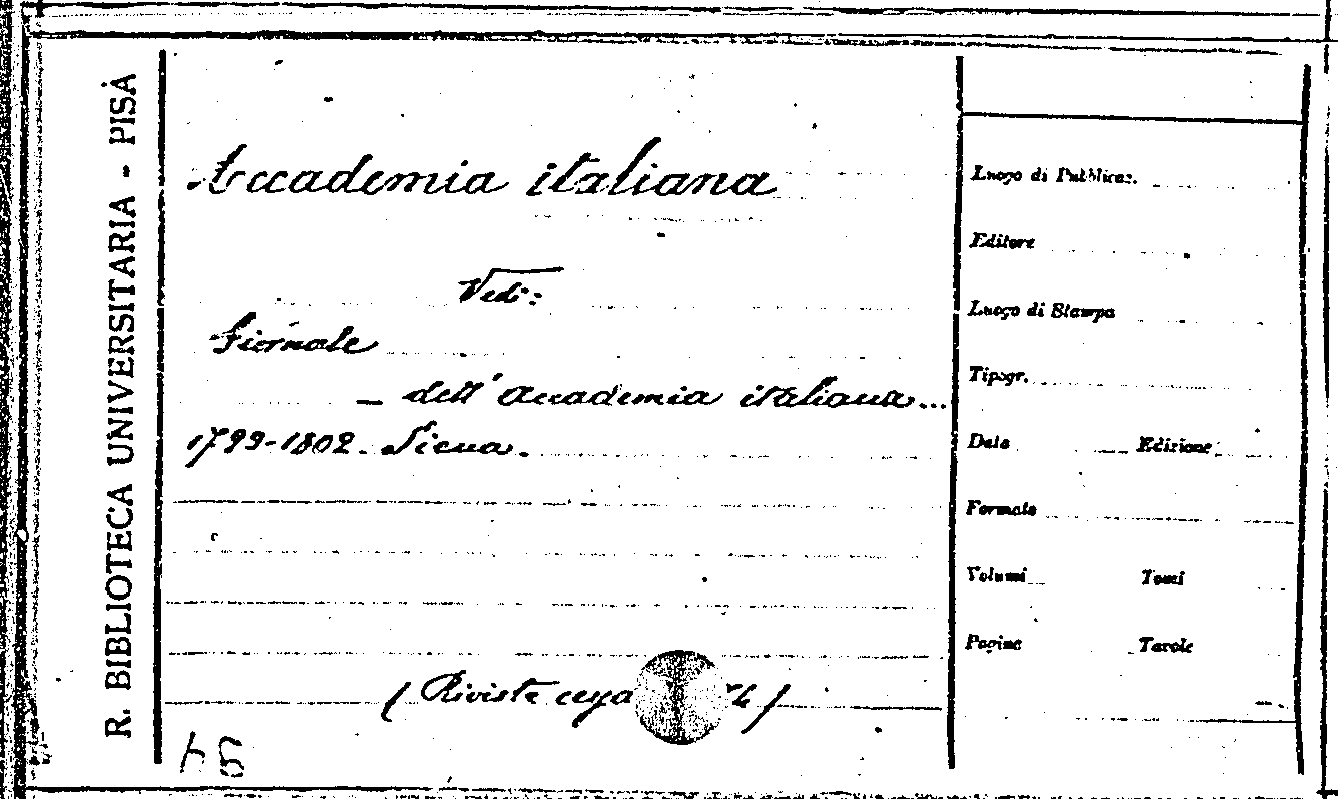 R. BIBLIOTECA UNIVERSITARIA - PISA
Accademia italiana
Vedi:
Giornale
— dell' Accademia italiana...
1799-1802. Siena.
(Riviste
Luogo di Pubblicaz.
Editore
Luogo di Stampa
Tipogr.
Data Edizione
Formato
Volumi Tomi
Pagine Tavole